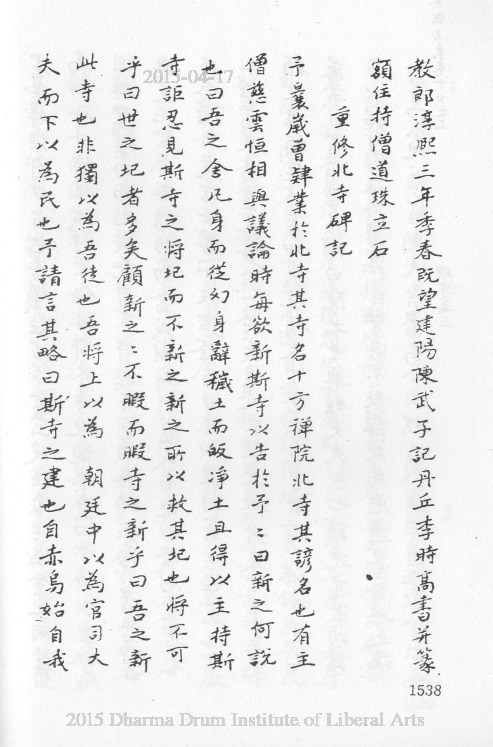 教郎淳熙三年季春既望建陽陳武子記丹丘李時髙書并篆
額住持僧道珠立石
重修北寺碑記
予曩歲曾肄業於北寺其寺名十方禅院北寺其諺名也有主
僧慈雲恒相與議論時每欲新斯寺以告於予〻曰新之何說
也曰吾之舍凡身而從幻身辭穢土而皈浄土且得以主持斯
寺詎忍見斯寺之将圮而不新之新之所以救其圮也将不可
乎曰世之圮者多矣顧新之〻不暇而暇寺之新乎曰吾之新
此寺也非獨以為吾徒也吾将上以為 朝廷中以為官司大
夫而下以為民也予請言其略曰斯寺之建也自赤烏始自我
1538
2015-04-17
2015 Dharma Drum Institute of Liberal Arts